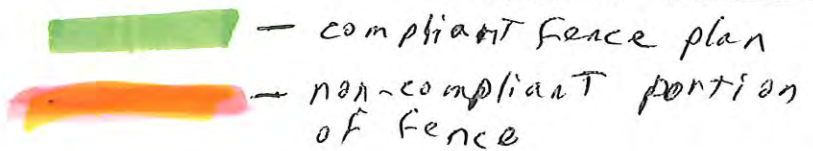 — compliant fence plan
— non-compliant portion
of fence